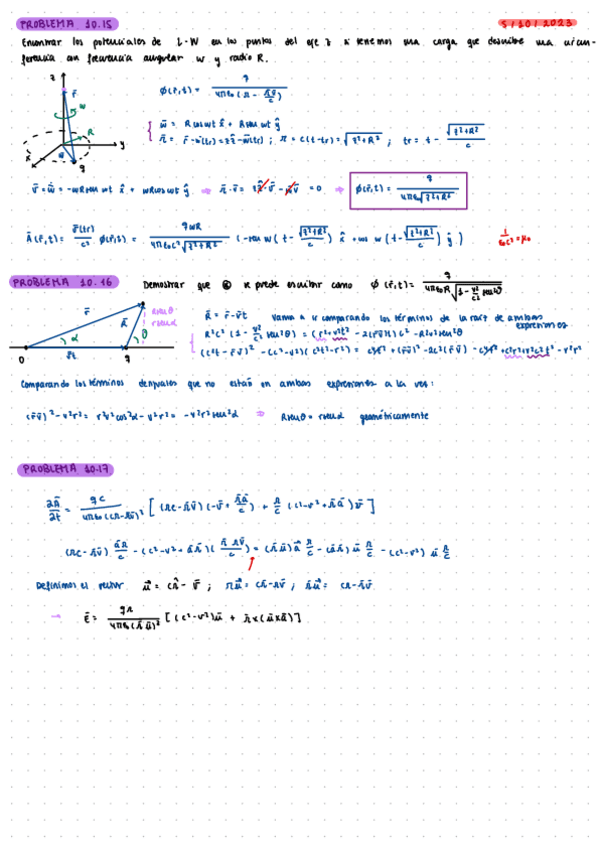 PROBLEMA 10.15
5/10/2023
Encontrar los potenciales de L-W en los puntos del eje z si tenemos una carga que describe una circun-
ferencia con frecuencia angular w y radio R.
z
r̄
w
R
y
x
w̄
q
φ(r̄,t) = q / 4πε₀(r - r̄v̄/c)
w̄ = R cos wt x̂ + R sen wt ŷ
r̄ = r̄ - w̄(tr) = zẑ - w̄(tr) ; r = c(t-tr) = √(z²+R²) ; tr = t - √(z²+R²)/c
v̄ = ẇ̄ = -wR sen wt x̂ + wR cos wt ŷ ⇒ r̄·v̄ = zẑ·v̄ - w̄v̄ = 0 ⇒ φ(r̄,t) = q / 4πε₀√(z²+R²)
Ā(r̄,t) = v̄(tr)/c² φ(r̄,t) = qwR / 4πε₀c²√(z²+R²) (-sen w (t - √(z²+R²)/c) x̂ + cos w (t - √(z²+R²)/c) ŷ)
1/ε₀c² = μ₀
PROBLEMA 10.16
Demostrar que se puede escribir como φ(r̄,t) = q / 4πε₀R√(1 - v²/c² sen²θ)
r̄
R̄
α
θ
R senθ
r senα
v̄t
O
q
R̄ = r̄ - v̄t Vamos a ir comparando los términos de la raíz de ambas
expresiones
R²c² (1 - v²/c² sen²θ) = (r² + v²t² - 2(r̄v̄)t) c² - R²v² sen²θ
(c²t - r̄v̄)² - (c²-v²)(c²t²-r²) = c⁴t² + (r̄v̄)² - 2c²t(r̄v̄) - c⁴t² + c²r² + v²c²t² - v²r²
Comparando los términos desiguales que no están en ambas expresiones a la vez:
(r̄v̄)² - v²r² = r²v²cos²α - v²r² = -v²r²sen²α ⇒ R senθ = r senα geométricamente
PROBLEMA 10.17
∂Ā/∂t = qc / 4πε₀(cr - r̄v̄)³ [(rc - r̄v̄)(-v̄ + r̄ā/c) + r/c (c² - v² + r̄ā) v̄]
Definimos el vector ū = cr̂ - v̄ ; rū = cr̄ - rv̄ ; r̄ū = cr - r̄v̄
→ Ē = qr / 4πε₀(r̄ū)³ [(c²-v²)ū + r̄×(ū×ā)]